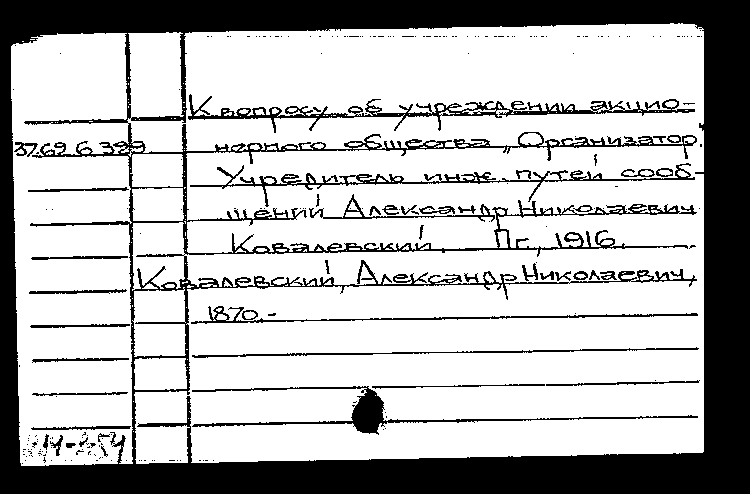 К вопросу об учреждении акцио-
37.69.6.399 нерного общества „Организатор".
Учредитель инж. путей сооб-
щений Александр Николаевич
Ковалевский. Пг., 1916.
Ковалевский, Александр Николаевич,
1870.-